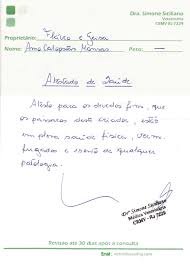 Dra. Simone Siciliano
Veterinária
CRMV-RJ 7229
Proprietário: Flávio e Geisa
Nome: Peso: —
Atestado de Saúde
Atesto para os devidos fins, que
os pássaros deste criador, estão
em plena saúde física, vermi-
fugados e isento de qualquer
patologia.
Drª Simone Siciliano
Médica Veterinária
CRMV - RJ 7229
Revisão até 30 dias após a consulta